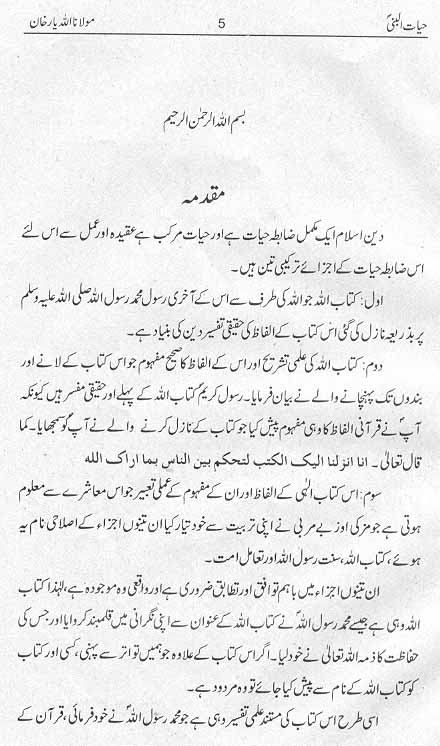 حیات النبیؐ 5 مولانا اللہ یار خان
بسم اللہ الرحمٰن الرحیم
مقدمہ
دین اسلام ایک مکمل ضابطہ حیات ہے اور حیات مرکب ہے عقیدہ اور عمل سے اس لئے
اس ضابطہ حیات کے اجزائے ترکیبی تین ہیں۔
اول: کتاب اللہ جو اللہ کی طرف سے اس کے آخری رسول محمد رسول اللہ صلی اللہ علیہ وسلم
پر بذریعہ نازل کی گئی اس کتاب کے الفاظ کی حقیقی تفسیر دین کی بنیاد ہے۔
دوم: کتاب اللہ کی علمی تشریح اور اس کے الفاظ کا صحیح مفہوم جو اس کتاب کے لانے اور
بندوں تک پہنچانے والے نے بیان فرمایا۔ رسول کریمؐ کتاب اللہ کے پہلے اور حقیقی مفسر ہیں کیونکہ
آپؐ نے قرآنی الفاظ کا وہی مفہوم پیش کیا جو کتاب کے نازل کرنے والے نے آپؐ کو سمجھایا۔ کما
قال تعالیٰ۔ انا انزلنا الیک الکتب لتحکم بین الناس بما اراک الله
سوم: اس کتاب الٰہی کے الفاظ اور ان کے مفہوم کے عملی تعبیر جو اس معاشرے سے معلوم
ہوتی ہے جو مزکی اور بے مربی نے اپنی تربیت سے خود تیار کیا ان تینوں اجزاء کے اصلاحی نام یہ
ہوئے، کتاب اللہ، سنت رسول اللہ اور تعامل امت۔
ان تینوں اجزاء میں باہم توافق اور تطابق ضروری ہے اور واقعی وہ موجود ہے، لہٰذا کتاب
اللہ وہی ہے جیسے محمد رسول اللہؐ نے کتاب اللہ کے عنوان سے اپنی نگرانی میں قلمبند کروایا اور جس کی
حفاظت کا ذمہ اللہ تعالیٰ نے خود لیا۔ اگر اس کتاب کے علاوہ جو ہمیں تواتر سے پہنی، کسی اور کتاب
کو کتاب اللہ کے نام سے پیش کیا جائے تو وہ مردود ہے۔
اسی طرح اس کتاب کی مستند علمی تفسیر وہی ہے جو محمد رسول اللہؐ نے خود فرمائی، قرآن کے